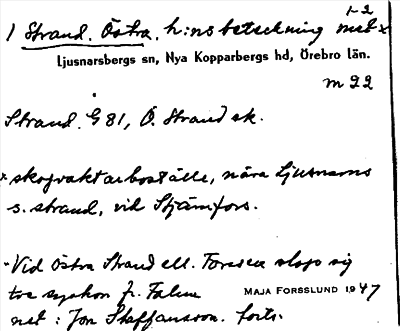 1-2
1 Strand. Östra, h:nsbeteckning met x
Ljusnarsbergs sn, Nya Kopparbergs hd, Örebro län.
m 22
Strand. G 81, Ö. Strand sk.
x skogvaktarboställe, nära Ljusnarns
s. strand, vid Stjärnfors.
Vid Östra Strand ell. slogo sig
tre syskon fr.
MAJA FORSSLUND 1947
net: Jon Staffansson. forts.